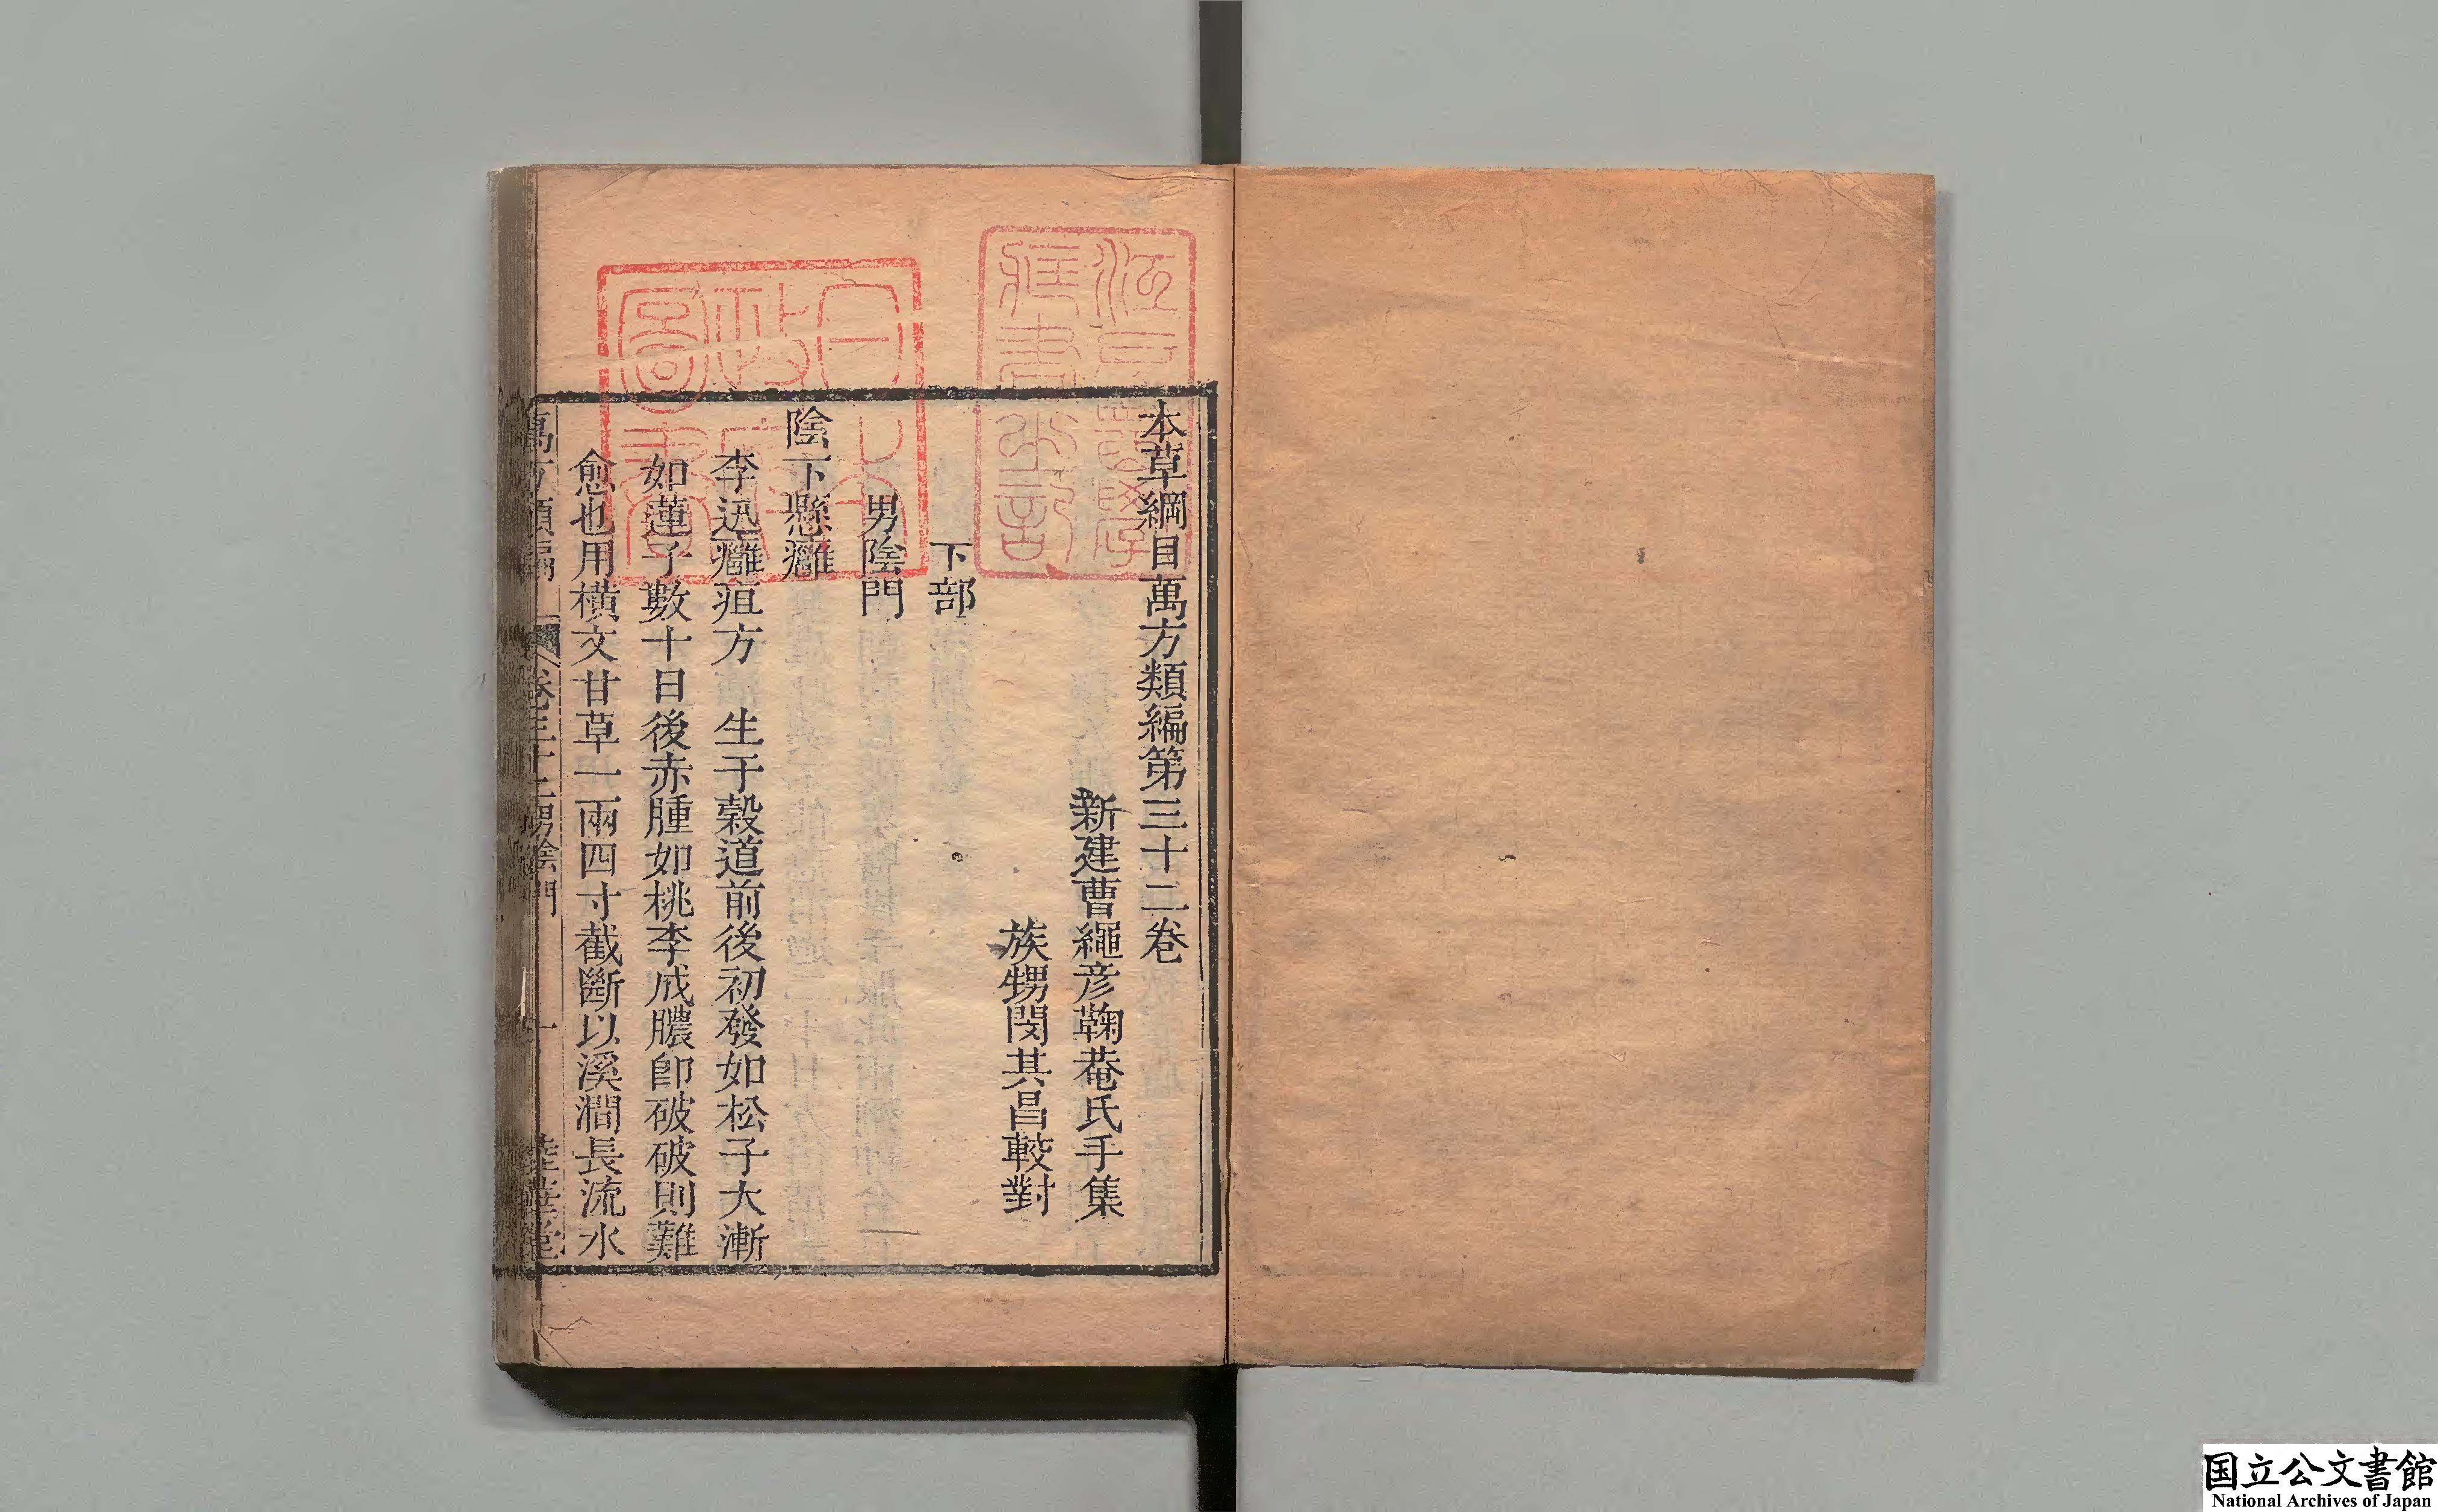 本草綱目萬方類編第三十二卷
新建曹繩彥鞠菴氏手集
族甥閔其昌較對
下部
男陰門
陰下懸癰
李迅癰疽方　生于穀道前後初發如松子大漸
如蓮子數十日後赤腫如桃李成膿卽破破則難
愈也用橫文甘草一兩四寸截斷以溪澗長流水
萬方類編
卷三十二男陰門
一
江戸醫學
藏書之記
日本
政府
圖書
国立公文書館
National Archives of Japan